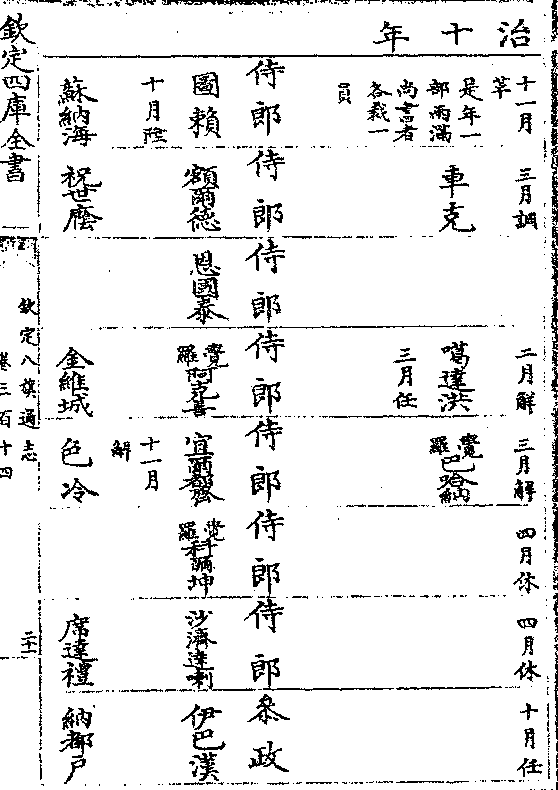 治十年
十一月
卒
是年一
部兩滿
尚書者
各裁一
員
侍郎
圖賴
十月陞
蘇納海
三月調
車克
侍郎
額爾德
祝世廕
侍郎
恩國泰
二月解
噶達洪
三月任
侍郎
覺羅阿克善
金維城
三月解
覺羅巴哈納
侍郎
宜爾都齊
十一月
解
色冷
四月休
侍郎
覺羅科爾坤
四月休
侍郎
沙濟達喇
席達禮
十月任
叅政
伊巴漢
納都戶
欽定四庫全書
欽定八旗通志
卷三百十四
二十一